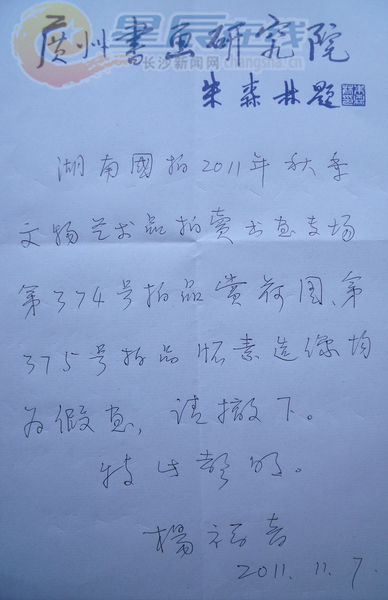 廣州書画研究院
朱森林題
星辰在线
长沙新闻网
changsha.cn
湖南國拍2011年秋季
文物艺术品拍賣书画专场
第374号拍品赏荷图、第
375号拍品怀素造像均
为假画，请撤下。
特此声明。
楊福音
2011.11.7.